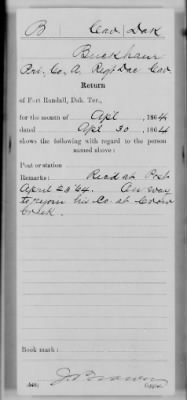 B | Cav | Dak
Buckham
Pvt. Co. A, Regt Dak Cav.
Return
of Fort Randall, Dak. Ter.,
for the month of Apl, 1864
dated Apl. 30, 1864
shows the following with regard to the person
named above:
Post or station
Remarks: Recd at Post
April 23 '64. On way
to rejoin his Co. at Crow
Creek.
Book mark:
(446)
Copyist.